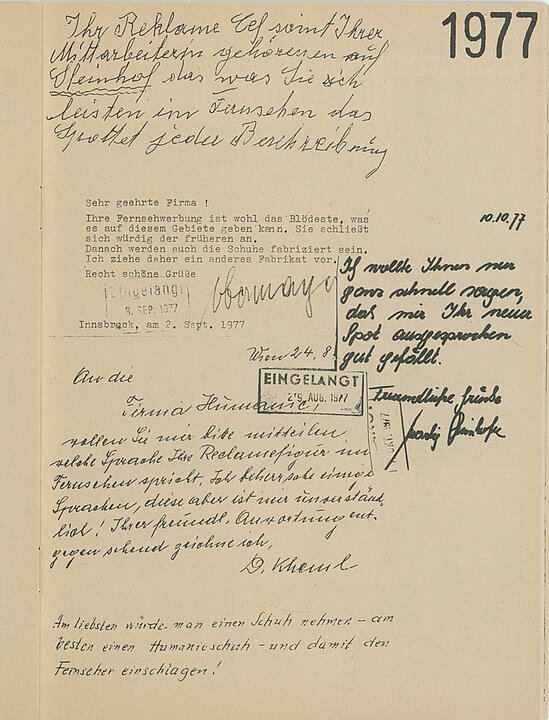 1977
Ihr Reklame Cef samt Ihrer
Mittarbeitern gehören auf
Steinhof das was Sie sich
leisten im Fernsehen das
Spottet jeder Beschreibung
Sehr geehrte Firma !
Ihre Fernsehwerbung ist wohl das Blödeste, was
es auf diesem Gebiete geben kann. Sie schließt
sich würdig der früheren an.
Danach werden auch die Schuhe fabriziert sein.
Ich ziehe daher ein anderes Fabrikat vor.
Recht schöne Grüße
Eingelangt
8. SEP. 1977
Innsbruck, am 2. Sept. 1977
10.10.77
Ich wollte Ihnen nur
ganz schnell sagen,
daß mir Ihr neuer
Spot ausgesprochen
gut gefällt.
Freundliche Grüße
Wien 24. 8.
EINGELANGT
29. AUG. 1977
An die
Firma Humanic!
wollen Sie mir bitte mitteilen,
welche Sprache Ihre Reclamefigur im
Fernsehen spricht. Ich beherrsche einige
Sprachen, diese aber ist mir unverständ-
lich! Ihrer freundl. Antwortung ent-
gegen sehend zeichne ich,
D. Kheml
Am liebsten würde man einen Schuh nehmen - am
besten einen Humanicschuh - und damit den
Fernseher einschlagen!